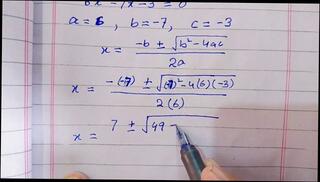 6x²-7x-3=0
a=6, b=-7, c=-3
x = -b ± √b²-4ac / 2a
x = -(-7) ± √(-7)²-4(6)(-3) / 2(6)
x = 7 ± √49 -